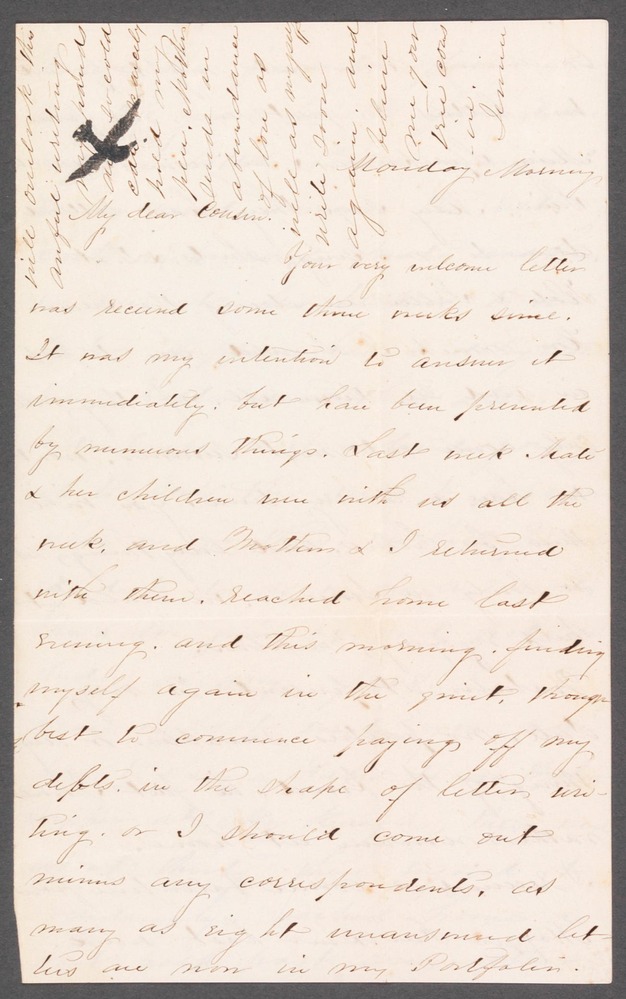 Monday Morning
My dear Cousin.
Your very welcome letter
was received some three weeks since.
It was my intention to answer it
immediately. but have been prevented
by numerous things. Last week Kate
& her children were with us all the
week. and Mother & I returned
with them. reached home last
evening. and this morning. finding
myself again in the quiet, though
best to commence paying off my
debts. in the shape of letter wri-
ting. or I should come out
minus any correspondents. as
many as eight unanswered let-
ters are now in my Portfolio.
will overlook this
awful writing
my hands
are so cold
can scarcely
hold my
pen. Mother
sends an
abundance
of love as
well as myself
write soon
again. and
believe
me your
true cous
in.